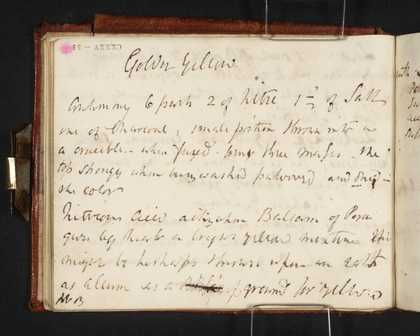 Golden Yellow
Antimony 6 parts 2 of Nitre 1 1/2 of Salt
one of Charcoal, small portion thrown into a
a crucible - when fused - four three The
strong when washed powdered and dried -
the color
Nitrous acid acting upon Balsam of Peru
gives by heat a bright yellow This
might be perhaps thrown upon an earth
as Alum as a ground for Yellow
NB